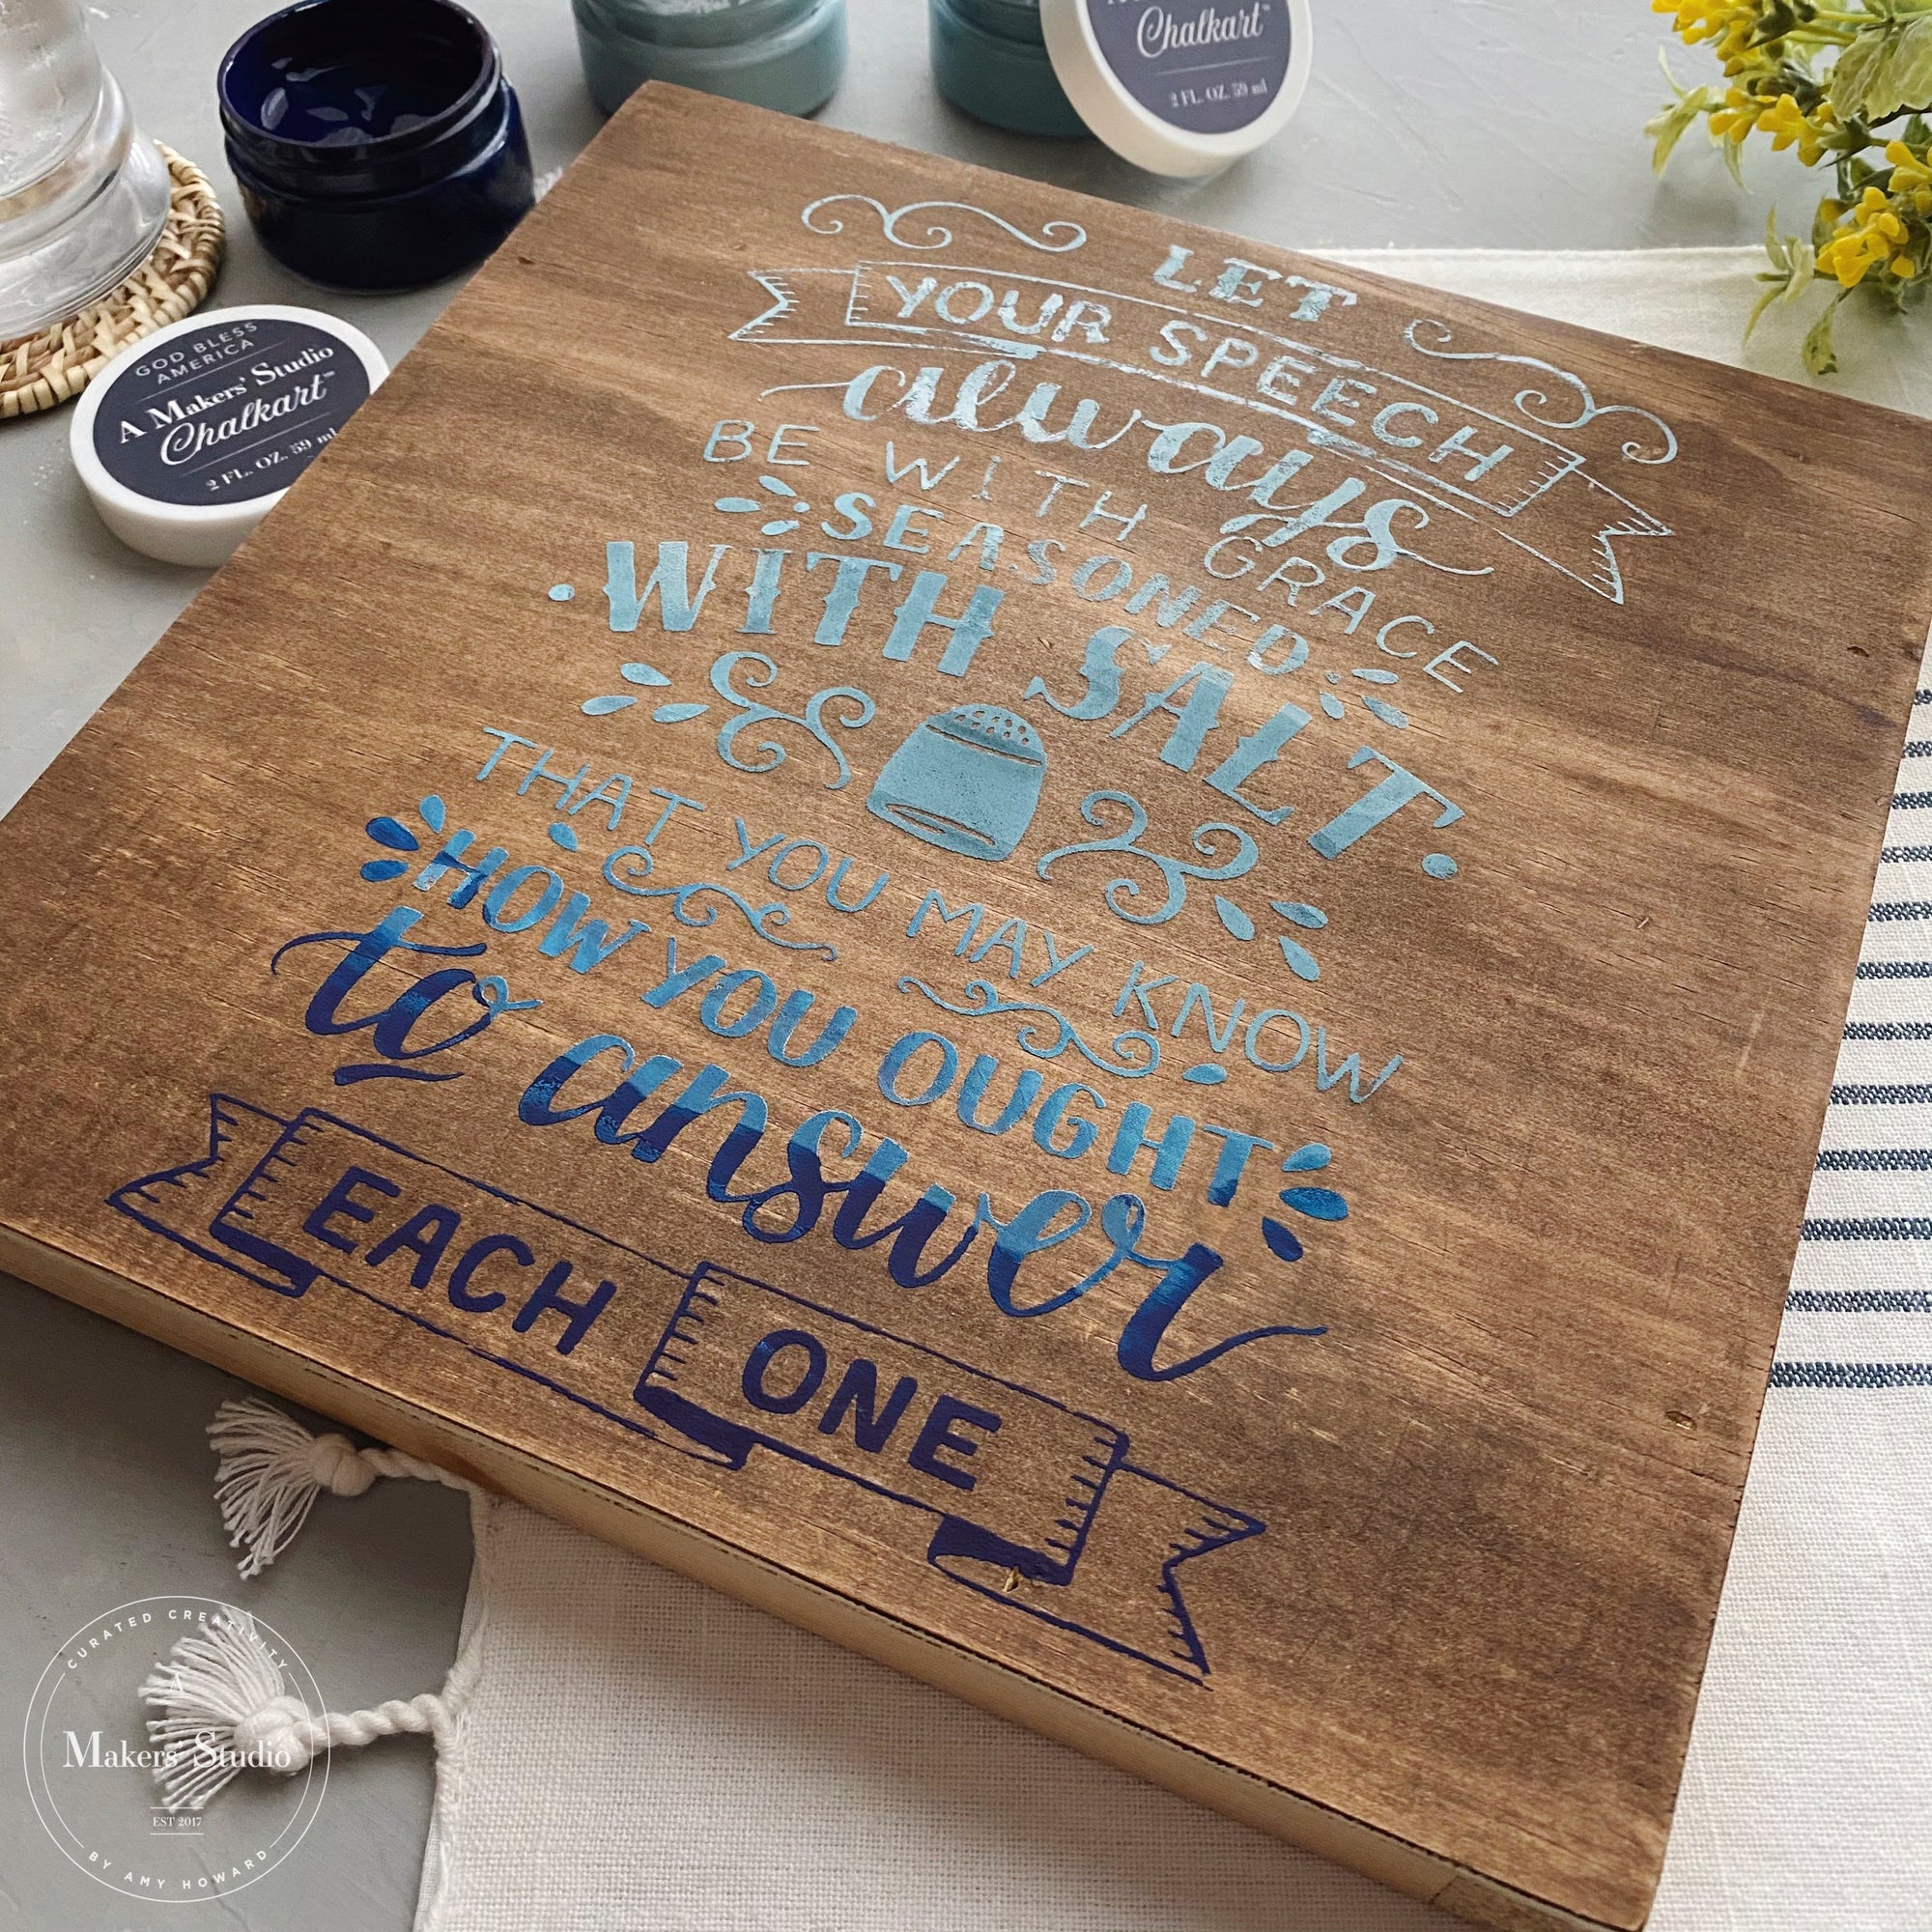 Chalkart™
2 FL. OZ. 59 ml
GOD BLESS
AMERICA
A Makers' Studio
Chalkart™
2 FL. OZ. 59 ml
LET
YOUR SPEECH
always
BE WITH GRACE
SEASONED
WITH SALT.
THAT YOU MAY KNOW
HOW YOU OUGHT
to answer
EACH ONE
CURATED CREATIVITY
A
Makers' Studio
EST 2017
BY AMY HOWARD